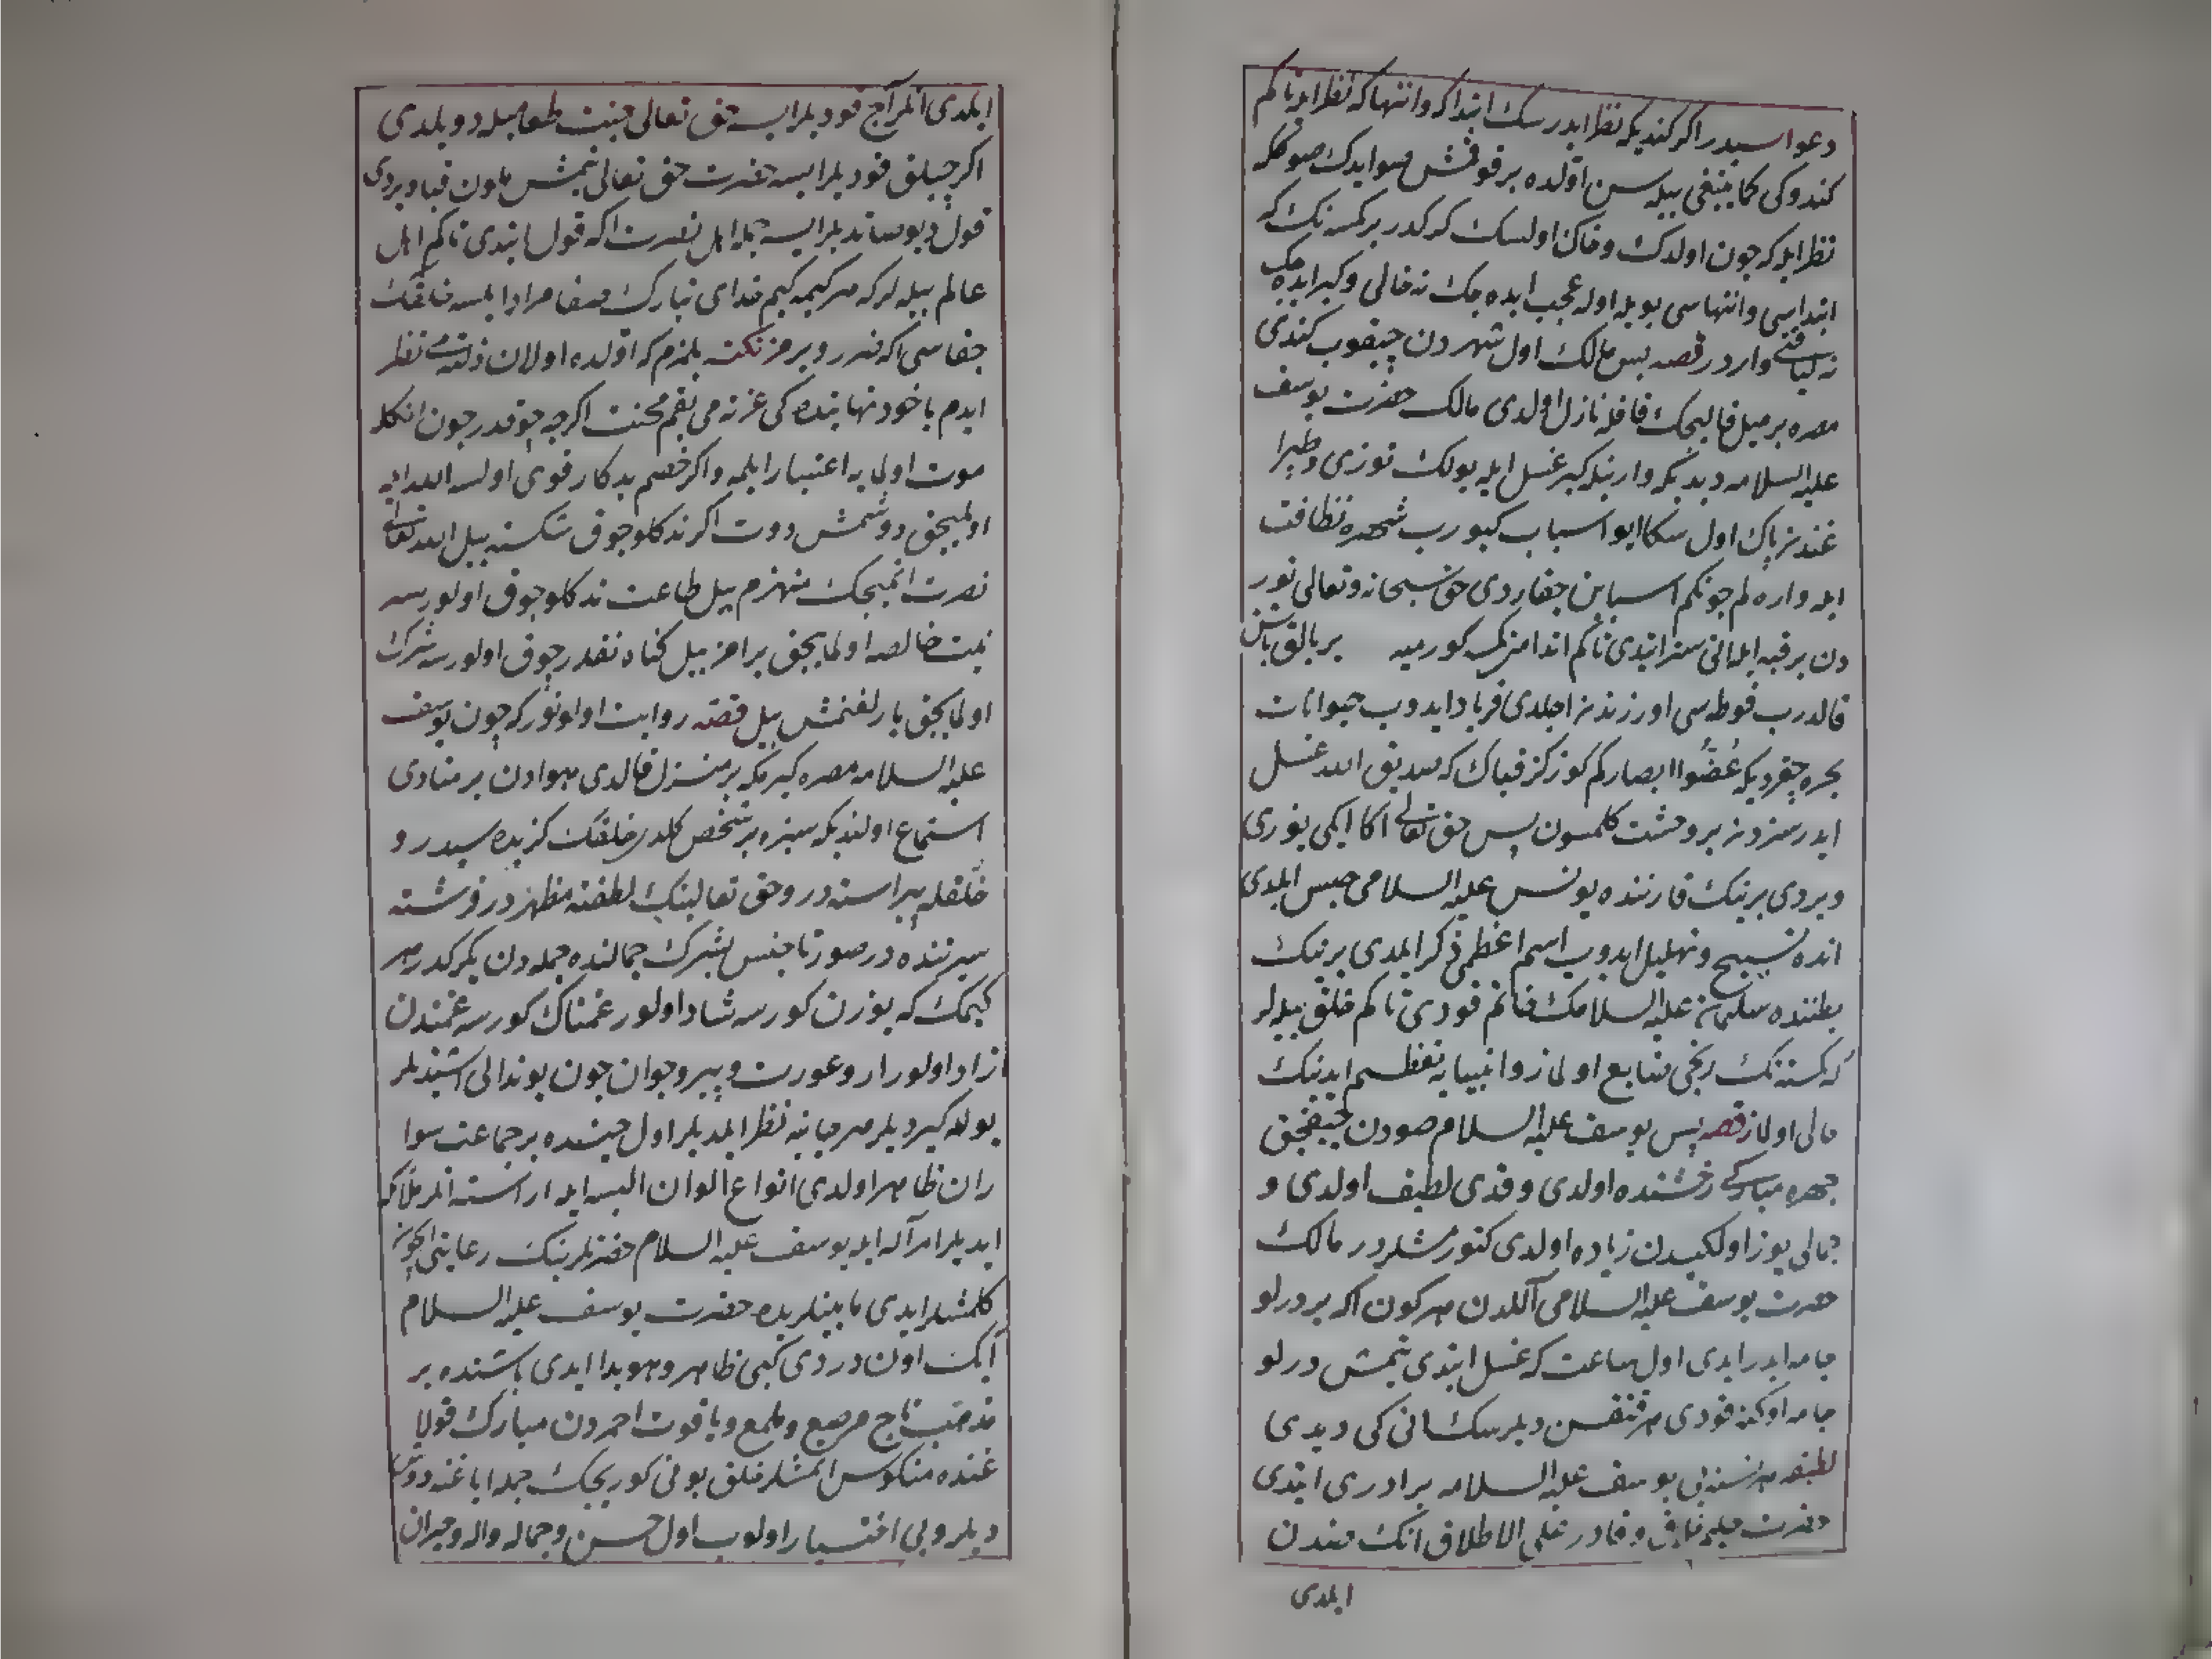 دعواسیدر اکر کندیکه نظر ایدرسك ابتداکه وانتهاکه نظر ایله تاکم
کندوکی کما ینبغی بیله سن اوّلده بر قوقمش صو ایدك صوڭكه
نظر ایله که چون اولدك وخاك اولسك کرکدر بر کمسه نك که
ابتداسی وانتهاسی بویله اوله عجب ایده جك نه حالی وکبر ایده جك
نه لیاقتی واردر قصه پس مالك اول شهردن چیقوب کندی
مصره بر میل قالیجك قافله نازل اولدی مالك حضرت یوسف
علیه السلامه دیدیکه وار نیله کیر غسل ایله یولك توزی
غندن پاك اول سکا ایو اسباب کیورب شهره نظافت
ایله واره لم چونکم اسبابن چقاردی حق سبحانه وتعالی نور
دن بر قبه ایله انی ستر ایتدی تاکم اندامن کمسه کورمیه بر بالق باشن
قالدرب فوطه سی اوزرندن اجلدی فریاد ایدوب حیوانات
بحره چقردیکه غُضّوا ابصارکم کوزکز قپاك که صدیق الله غسل
ایدر سزدن بر وحشت کلمسون پس حق تعالی اکا ایکی یوری
ویردی برینك قارننده یونس علیه السلامی حبس ایلدی
انده تسبیح وتهلیل ایدوب اسم اعظمی ذکر ایلدی برینك
بطننده سلیمان علیه السلامك خاتم قودی تاکم خلق بیله لر
که کمسنه نك رنجی ضایع اولماز وانبیایه تعظیم ایدنیك
مالی اولماز قصه پس یوسف علیه السلام صودن چیقیجق
چهره مبارکی رخشنده اولدی وقدی لطیف اولدی و
جمالی یوز اولکیدن زیاده اولدی کتورمشلردر مالك
حضرت یوسف علیه السلامی آلدن هر کون اکه بر درلو
جامه ایدر ایدی اول ساعت که غسل ایتدی یتمش درلو
جامه اوکنه قودی هر قنغیسن دیلرسك انی کی دیدی
لطیفه یوسف علیه السلامه برادری ایتدی
حضرت جلیل خالق وقادر علی الاطلاق انك ضدن
ایلدی
ایلدی انلر آج قودیلر ایسه حق تعالی جنت طعامیله دویلدی
اکر چبلاق قودیلر ایسه حضرت حق تعالی یتمش هاون قبا ویردی
قول دیو صاتدیلر ایسه جمله اهل نصرت اکه قول ایتدی تاکم اهل
عالم بیله لر که هر کیمه کیم خدای تبارك صفا مراد ایلسه خلقك
جفاسی اکه ضرر ویرمز نکته بلمزم که اوّلده اولان ذلته می نظر
ایدم یاخود نهایتده کی عزته می بقم محنت اکرچه چوقدر چون انکله
موت اولمایه اعتبار ایلمه واکر خصم بدکار قوی اولسه الله ایه
اولمیجق دوشمش دوت اکر نه دکلو چوق شکسته بیل الله تعالی
نصرت اتمیجك منهزم بیل طاعت نه دکلو چوق اولورسه
نیت خالصه اولمایجق برامز بیل کناه نقدر چوق اولورسه شرك
اولمایجق یارلغنمش بیل قصه روایت اولونور که چون یوسف
علیه السلامه مصره کیرمکه بر منزل قالدی هوادن بر منادی
استماع اولندیکه سزه بر شخص کلدی خلقك کزیده سیدر و
خلقله پیراسته در وحق تعالینك لطفنه مظهردر فرشته
سیرتنده در صورتا جنس بشرك جمالنده جمله دن یکرکدر هر
کیمك که یوزن کورسه شاد اولور غمناك کورسه غمندن
ازاد اولور ار وعورت وپیر وجوان چون بو ندالی اشتدیلر
یوله کیردیلر هر جانبه نظر ایلدیلر اول حینده بر جماعت سوا
ران ظاهر اولدی انواع الوان البسه ایله اراسته انلر ملائکه
ایدیلر امر آله ایله یوسف علیه السلام حضرتلرینك رعایتی ایچون
کلمشلر ایدی مابینلرنده حضرت یوسف علیه السلام
آیك اون دردی کبی ظاهر وهویدا ایدی باشنده بر
مذهب تاج مرصع وملمع ویاقوت احمردن مبارك قولا
غنده منکوس اتمشلر خلق بونی کوریجك جمله ایاغنه دوشـ
دیلر وبی اختیار اولوب اول حسن وجماله واله وحیران